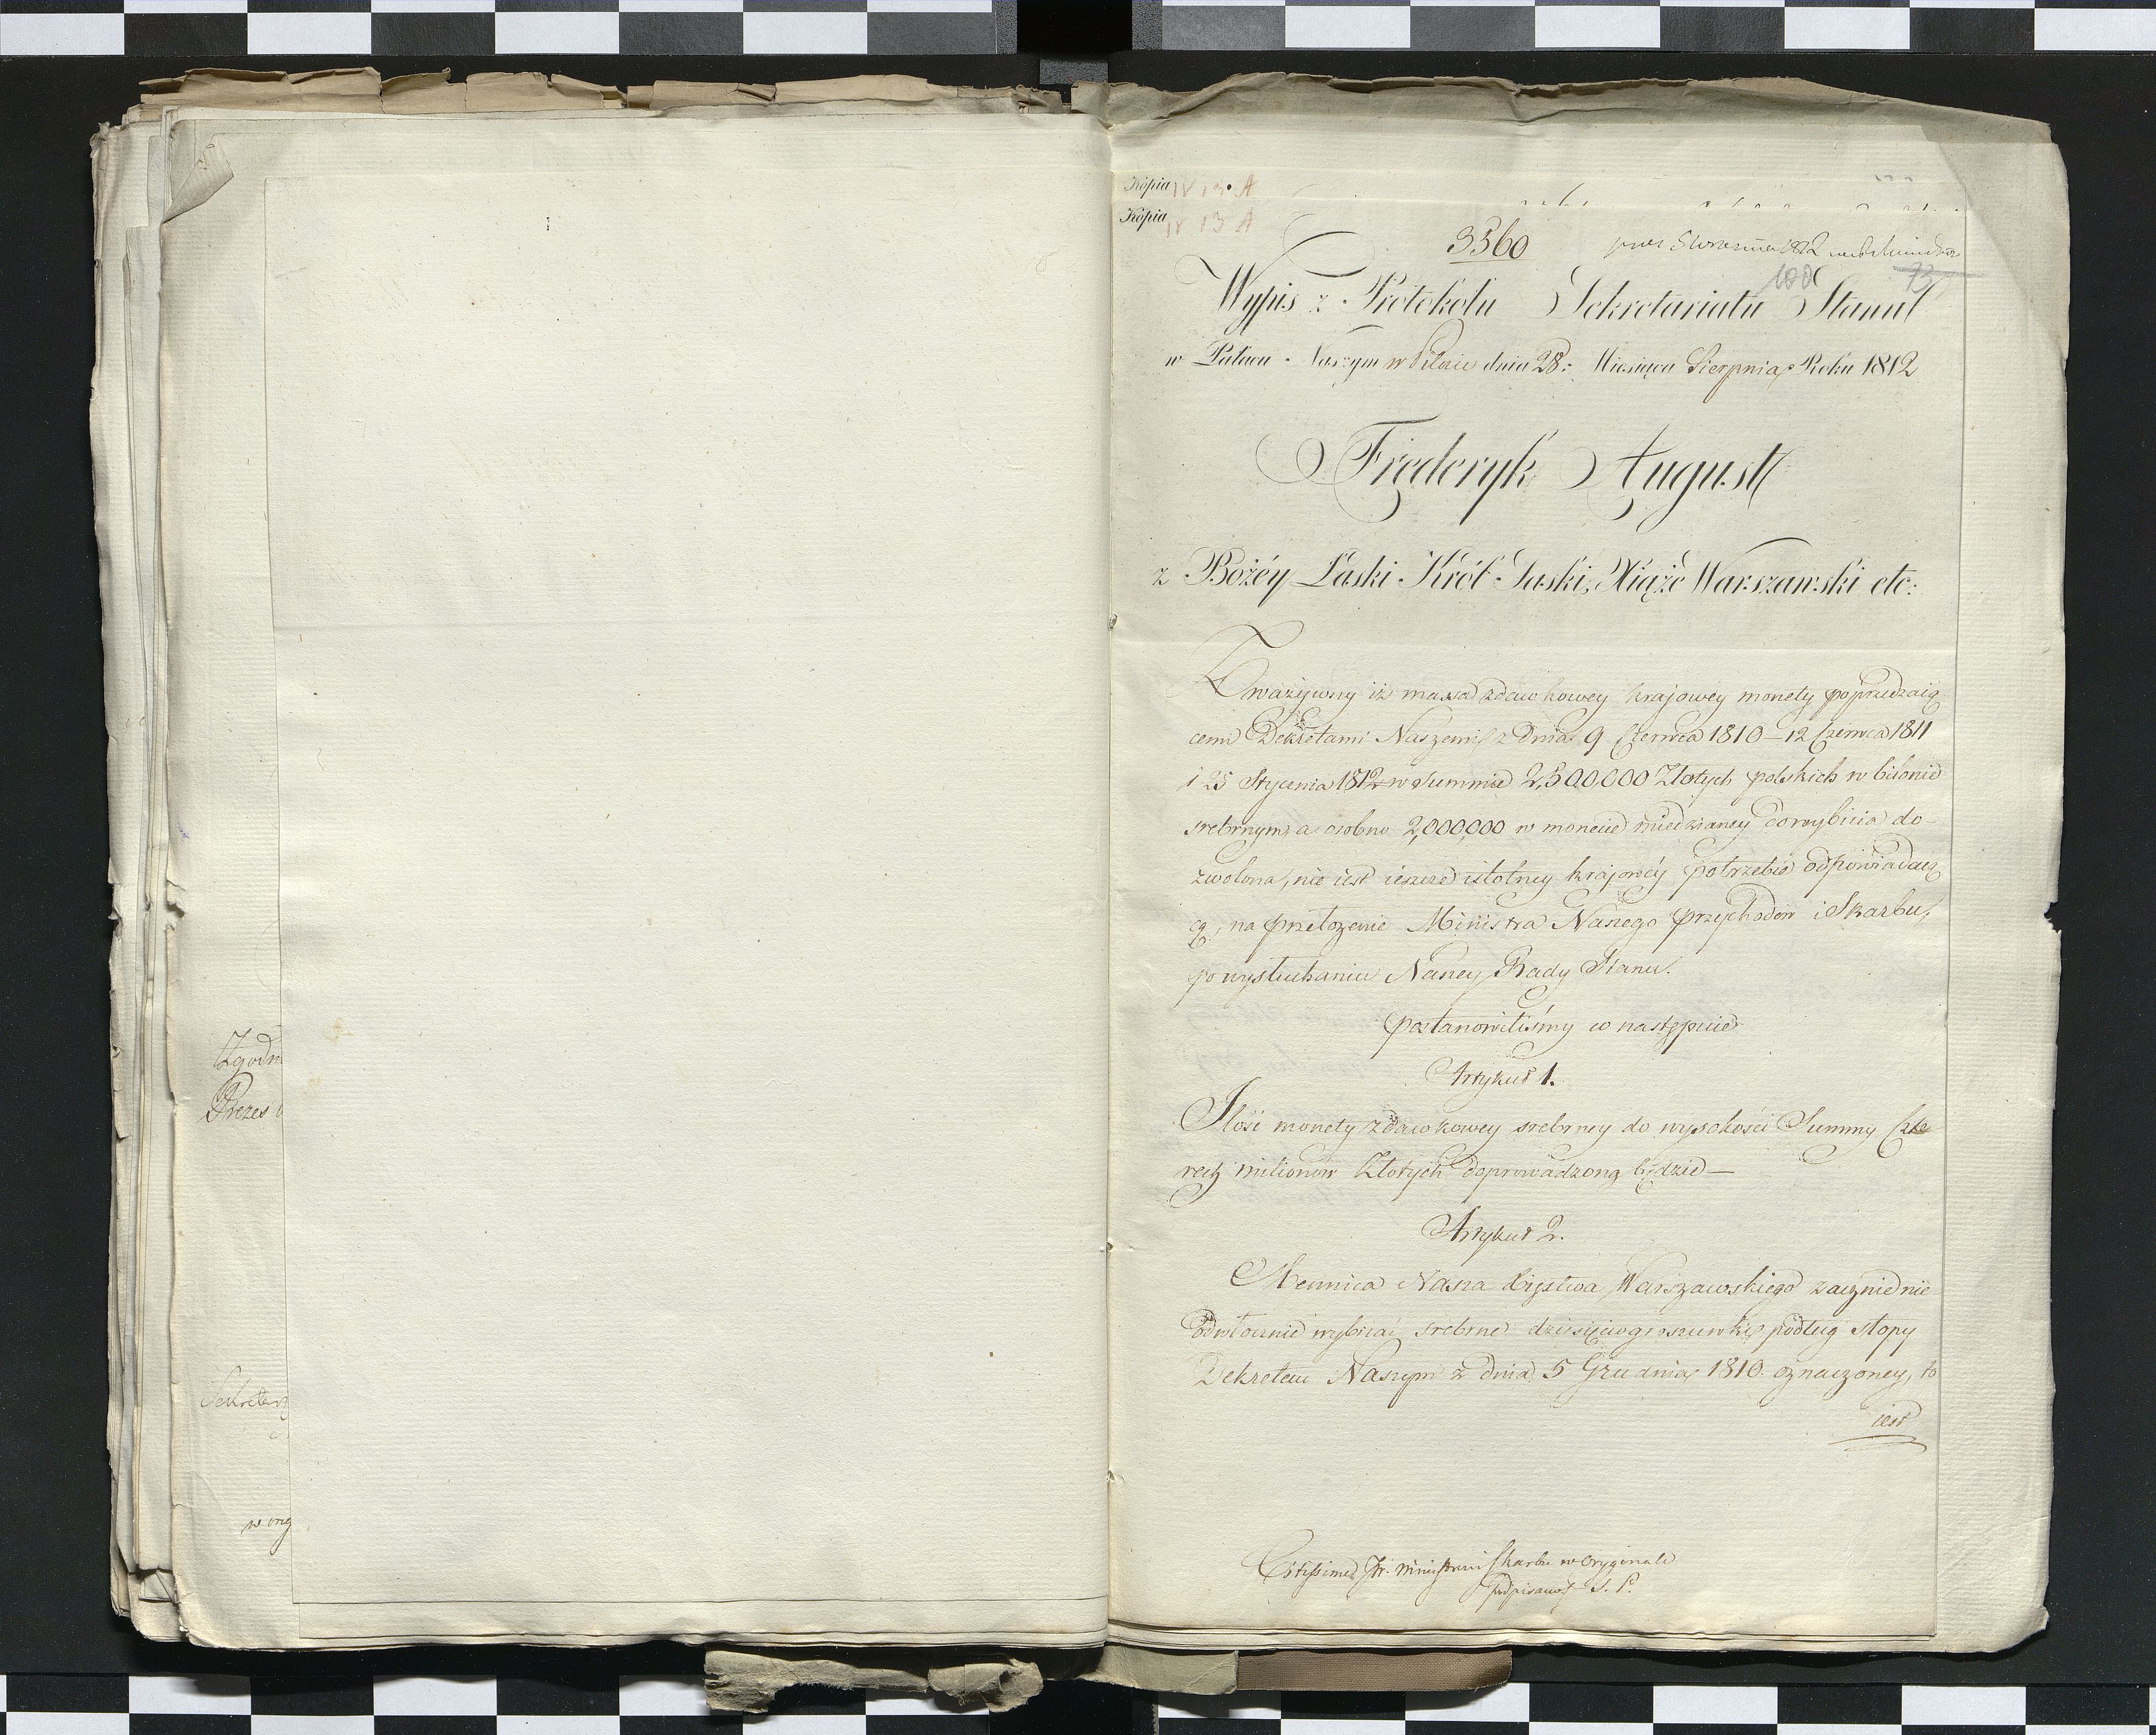 Zgodn
Prezes
Sekretarz
w ory
Kópia IV 13 A
Kópia IV 13 A
3560
prez 5 Września 1812
100 73
Wypis z Protokołu Sekretariatu Stanu
w Pałacu Naszym w Pilnic dnia 28: Miesiąca Sierpnia Roku 1812
Fryderyk August
z Bożéy Łaski Król Saski, Xiąże Warszawski etc:
Zważywszy iż massa zdawkowey krajowéy monety poprzedzaią
cemi Dekretami Naszemi z dnia 9 Czerwca 1810 – 12 Czerwca 1811
i 25 Stycznia 1812 w Summie 2,500,000 Złotych polskich w bilonie
srebrnym, a osobno 2,000,000 w monecie miedzianey do wybicia do-
zwolona, nie iest ieszcze istotney krajowéy potrzebie odpowiadaią
cą, na przełożenie Ministra Naszego Przychodów i Skarbu,
po wysłuchaniu Naszey Rady Stanu.
postanowiliśmy co następuie
Artykuł 1.
Ilość monety zdawkowey srebrney do wysokości Summy Czte
rech milionów Złotych doprowadzoną będzie —
Artykuł 2.
Mennica Nasza Xięstwa Warszawskiego zacznie nie
odwłocznie wybiiać srebrne dziesięciogroszówki podług stopy
Dekretem Naszym z dnia 5 Grudnia 1810. oznaczoney, to
iest
Ministrowi Skarbu w oryginale
podpisano J. P.